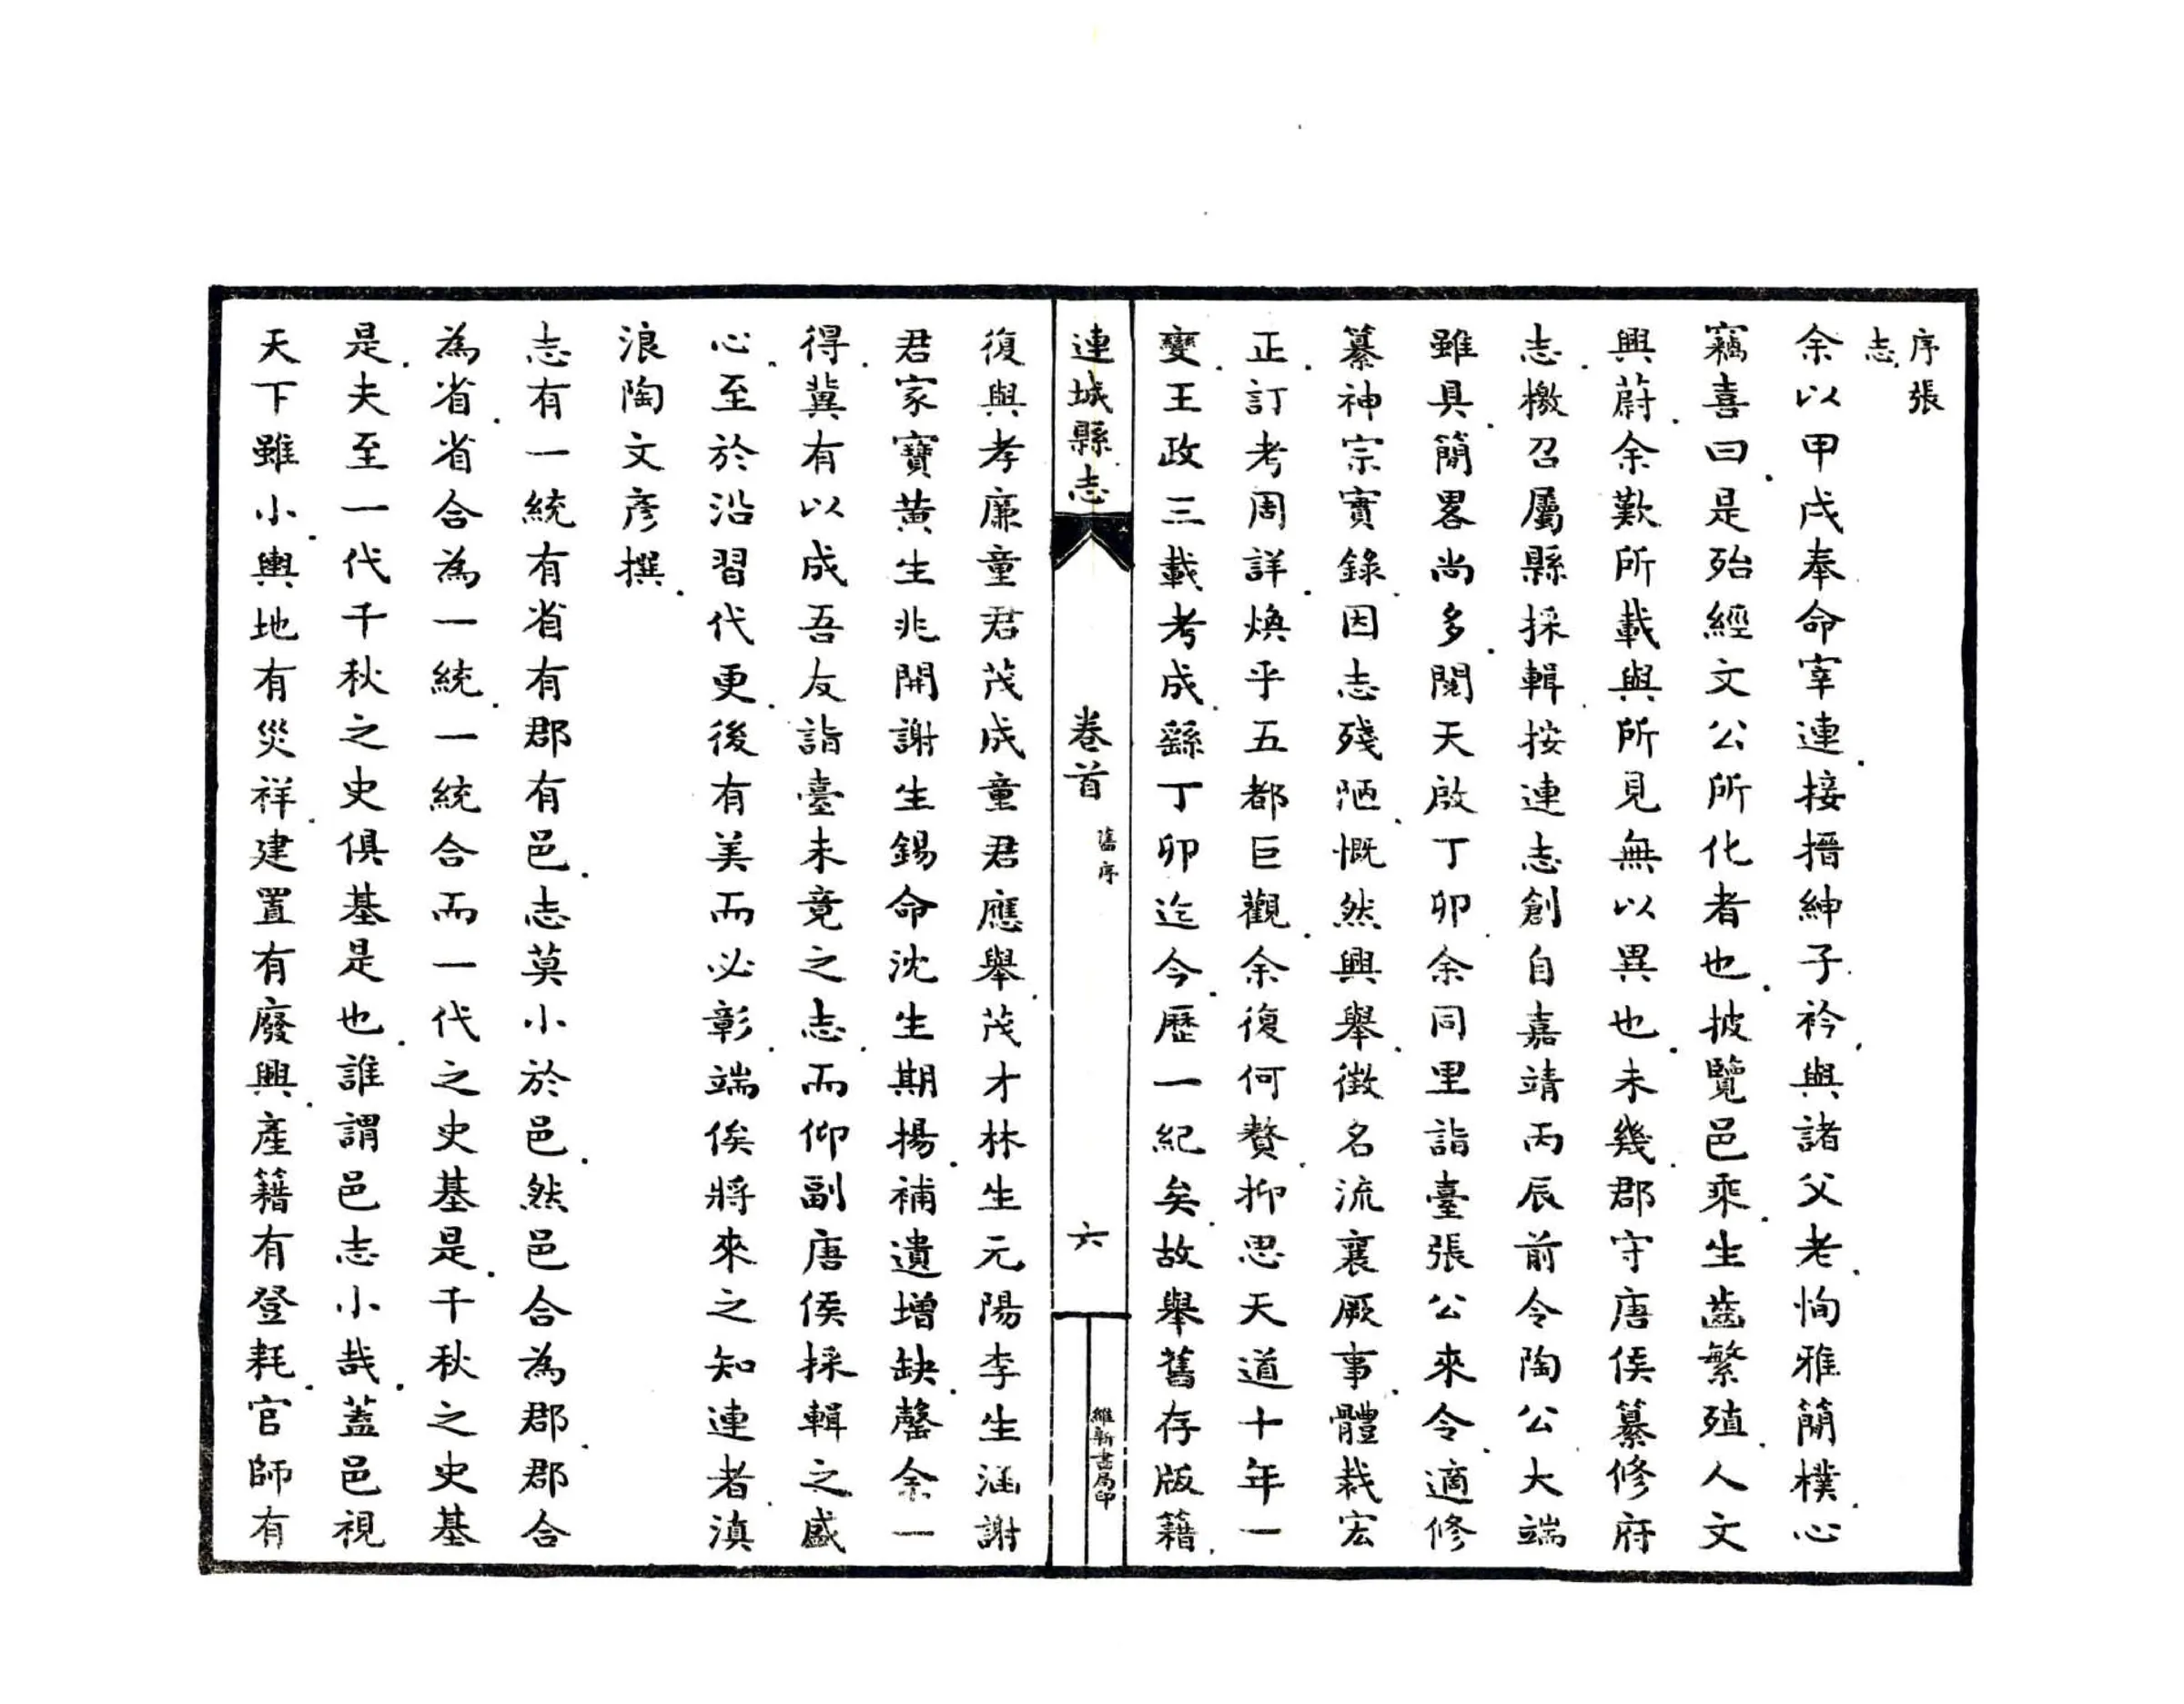 序張
志
余以甲戌奉命宰連接搢紳子衿與諸父老恂雅簡樸心
竊喜曰是殆經文公所化者也披覽邑乘生齒繁殖人文
興蔚余歎所載與所見無以異也未幾郡守唐侯纂修府
志檄召屬縣採輯按連志創自嘉靖丙辰前令陶公大端
雖具簡畧尚多閱天啟丁卯余同里詣臺張公來令適修
纂神宗實錄因志殘陋慨然興舉徵名流襄厥事體栽宏
正訂考周詳煥乎五都巨觀余復何贅抑思天道十年一
變王政三載考成繇丁卯迄今歷一紀矣故舉舊存版籍
連城縣志
卷首
舊序
六
維新書局印
復與孝廉童君茂成童君應舉茂才林生元陽李生涵謝
君家寶黃生兆開謝生錫命沈生期揚補遺增缺罄余一
得冀有以成吾友詣臺未竟之志而仰副唐侯採輯之盛
心至於沿習代更後有美而必彰端俟將來之知連者滇
浪陶文彥撰
志有一統有省有郡有邑志莫小於邑然邑合為郡郡合
為省省合為一統一統合而一代之史基是千秋之史基
是夫至一代千秋之史俱基是也誰謂邑志小哉蓋邑視
天下雖小輿地有災祥建置有廢興產籍有登耗官師有